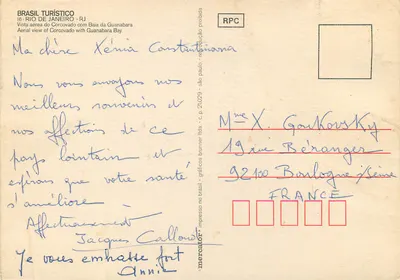 BRASIL TURÍSTICO
RIO DE JANEIRO - RJ
Vista aérea do Corcovado com Baía da Guanabara
Aerial view of Corcovado with Guanabara Bay
RPC
Ma chère Xénia Constantinovna
Nous vous envoyons nos
meilleurs souvenirs et
nos affections de ce
pays lointain et
espérons que votre santé
s'améliore
Affectueusement
Jacques
Je vous embrasse fort
Annie
Mme X. Goukovsky
19 rue Béranger
92100 Boulogne s/Seine
FRANCE
mercator
impresso no brasil
são paulo